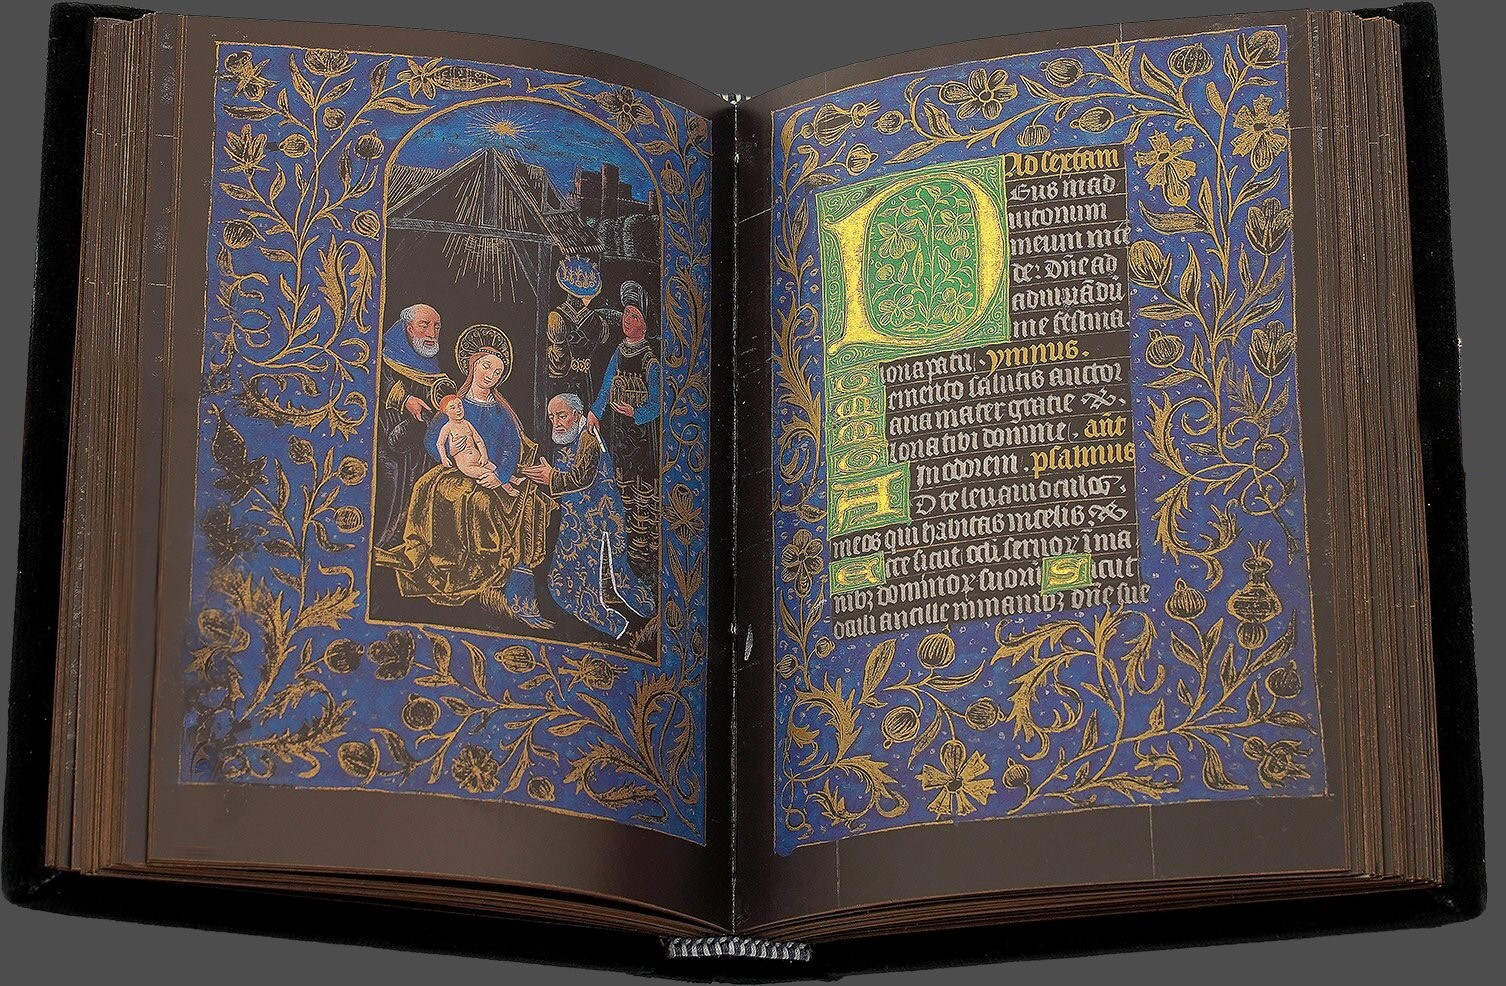 Ad sextam
Deus in ad
iutorium
meum inte
de: dn̄e ad
adiuuādū
me festina.
Gloria patri. ymnus.
Memento salutis auctor
Maria mater gratie
Gloria tibi domine. ant
In odorem. psalmus
AD te leuaui oculos
meos qui habitas in celis
Ecce sicut oculi seruorꝝ in ma
nibꝫ dominorꝝ suorū Sicut
oculi ancille in manibꝫ dn̄e sue